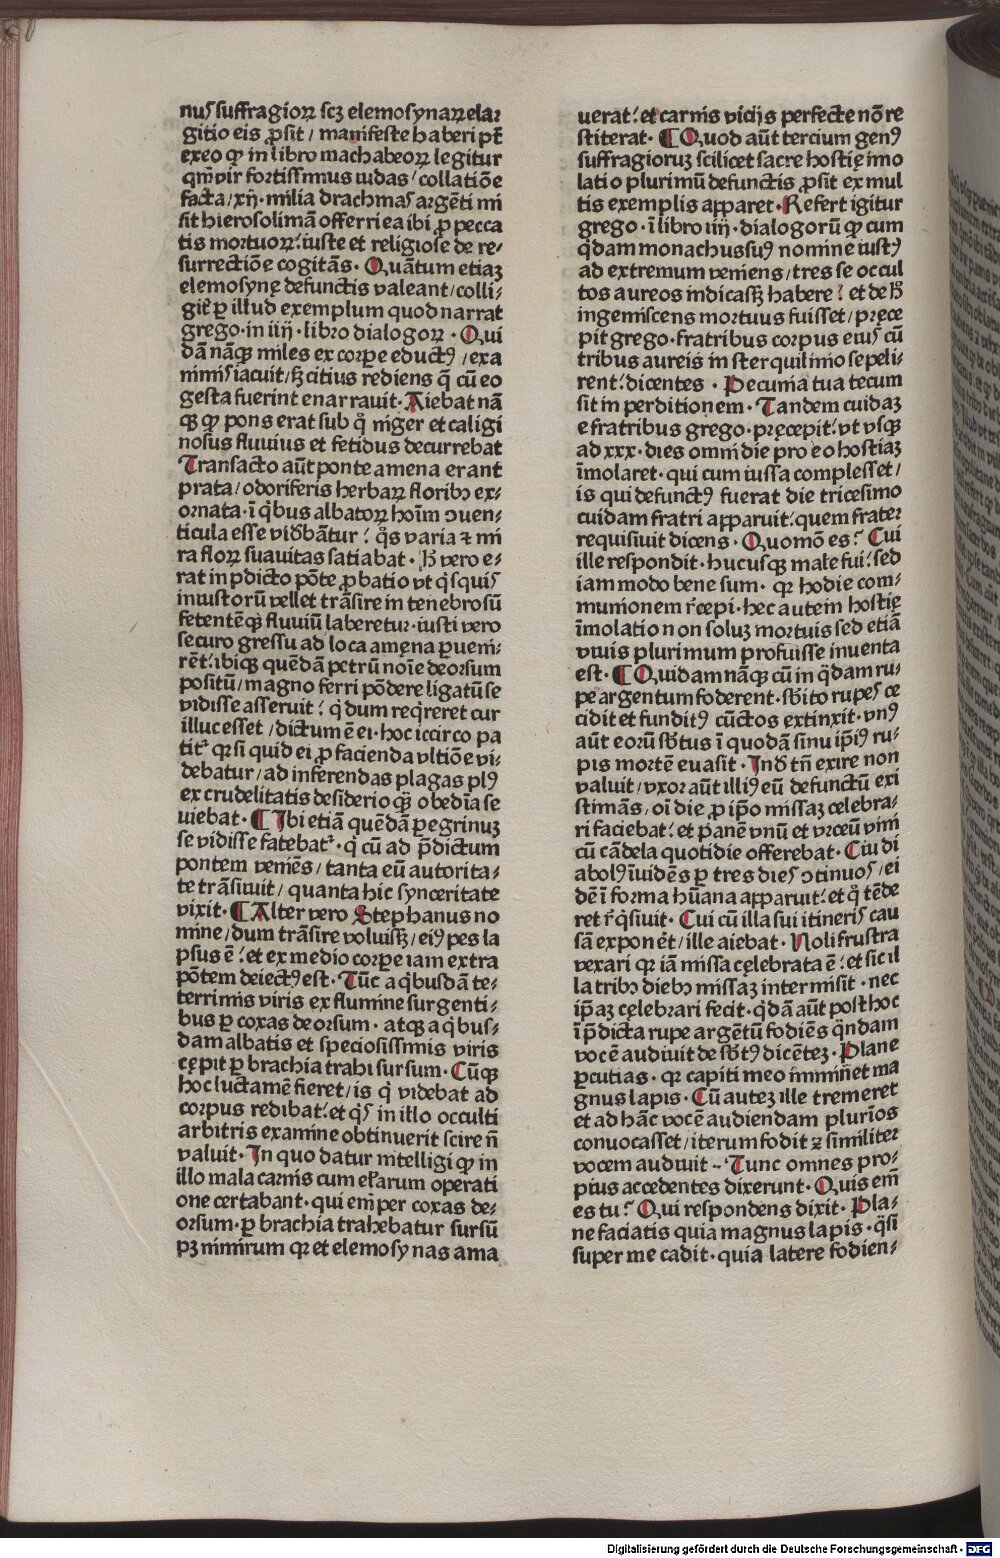 nuſ suffragioꝝ scꝫ elemosynaꝝ elar
gitio eis ꝓsit / manifeste haberi pt̄
ex eo ꝙ in libro machabeoꝝ legitur
qm̄ vir fortissimus iudas / collatiōe
facta / xij · milia drachmaſ argēti mi
sit hierosolimā offerri ea ibi ꝓ pecca
tis mortuoꝝ: iuste et religiose de re⸗
surrectiōe cogitās · Quātum etiaꝫ
elemosynę defunctis valeant / colli⸗
git̉ ꝑ illud exemplum quod narrat
grego · in iiij · libro dialogoꝝ · Qui
dā nāqꝫ miles ex corpe eductꝰ / exa
nimiſ iacuit / sꝫ citius rediens q̄ cū eo
gesta fuerint enarrauit · Aiebat nā
qꝫ ꝙ pons erat sub q̊ niger et caligi
nosus fluuius et fetidus decurrebat
Transacto aūt ponte amena erant
prata / odoriferis herbaꝝ floribꝰ ex⸗
ornata · ī q̇bus albatoꝝ hoīm ↄuen⸗
ticula esse vidēbātur: q̊s varia ⁊ mi
ra floꝝ suauitas satiabat · H̄ vero e⸗
rat in p̄dicto pōte ꝓbatio vt q̇squiſ
iniustorū vellet trāsire in tenebrosū
fetentēqꝫ fluuiū laberetur · iusti vero
securo gressu ad loca amęna ꝑueni⸗
rēt: ibiqꝫ quēdā petrū noīe deorsum
positū / magno ferri pōdere ligatū se
vidisse asseruit: q̇ dum req̇reret cur
illuc esset / dictum ē ei · hoc iccirco pa
tit̉ qꝛ si quid ei ꝓ facienda vltiōe vi⸗
debatur / ad inferendas plagas plꝰ
ex crudelitatis desiderio qꝫ obedīa se
uiebat · ¶ Ibi etiā quēdā ꝑegrinuꝫ
se vidisse fatebat̉ · q̇ cū ad p̄dictum
pontem veniēs / tanta eū autorita⸗
te trāsiuit / quanta hic synceritate
vixit · ¶ Alter vero Stephanus no
mine / dum trāsire voluisꝫ / eiꝰ pes la
psus ē: et ex medio corpe iam extra
pōtem deiectꝰ est · Tūc a q̇busdā te⸗
terrimis viris ex flumine surgenti⸗
bus ꝑ coxas deorsum · atqꝫ a q̇bus⸗
dam albatis et speciosissimis viris
cępit ꝑ brachia trahi sursum · Cūqꝫ
hoc luctamē fieret / is q̇ videbat ad
corpus redibat: et q̇ſ in illo occulti
arbitris examine obtinuerit scire n̄
valuit · In quo datur intelligi ꝙ in
illo mala carnis cum eƚarum operati
one certabant · qui em̄ per coxas de⸗
orsum · ꝑ brachia trahebatur sursū
pꝫ nimirum qꝛ et elemosynas ama
uerat: et carnis vicijs perfecte nō re
stiterat · ¶ Quod aūt tercium genꝰ
suffragioruꝫ scilicet sacre hostię imo
latio plurimū defunctis ꝓsit ex mul
tis exemplis apparet · Refert igitur
grego · ī libro iiij · dialogorū ꝙ cum
q̇dam monachus suꝰ nomine iustꝰ
ad extremum veniens / tres se occul
tos aureos indicasꝫ habere: et de h̄
ingemiscens mortuus fuisset / pręce
pit grego · fratribus corpus eiuſ cū
tribus aureis in sterquilinio sepeli⸗
rent: dicentes · Pecunia tua tecum
sit in perditionem · Tandem cuidaꝫ
e fratribus grego · pręcepit: vt vsqꝫ
ad xxx · dies omni die pro eo hostiaꝫ
īmolaret · qui cum iussa complesset /
is qui defunctꝰ fuerat die tricesimo
cuidam fratri apparuit: quem frater
requisiuit dicens · Quomō es? Cui
ille respondit · hucusqꝫ male fui: sed
iam modo bene sum · qꝛ hodie com⸗
munionem r̄cepi · hec autem hostię
īmolatio non soluꝫ mortuis sed etiā
viuis plurimum profuisse inuenta
est · ¶ Quidam nāqꝫ cū in q̇dam ru⸗
pe argentum foderent · sb̄ito rupeſ ce
cidit et funditꝰ cūctos extinxit · vnꝰ
aūt eorū sb̄tus ī quodā sinu ip̄iꝰ ru⸗
pis mortē euasit · Indē tn̄ exire non
valuit / vxor aūt illiꝰ eū defunctū exi
stimās / oī die ꝓ ip̄o missaꝫ celebra⸗
ri faciebat: et panē vnū et vrceū vini
cū cādela quotidie offerebat · Cui di
abolꝰ īuidēs ꝑ tres dieſ ↄtinuoſ / ei
dē ī forma hūana apparuit: et q̊ tēde
ret r̄q̇siuit · Cui cū illa sui itineriſ cau
sā exponēt / ille aiebat · Noli frustra
vexari qꝛ iā missa cęlebrata ē: et sic il
la tribꝰ diebꝰ missaꝫ intermisit · nec
ip̄aꝫ cęlebrari fecit · q̇dā aūt post hoc
ī p̄dicta rupe argētū fodiēs q̄ndam
vocē audiuit de sb̄tꝰ dicēteꝫ · Plane
ꝑcutias · qꝛ capiti meo imminet ma
gnus lapis · Cū auteꝫ ille tremeret
et ad hāc vocē audiendam plurīos
conuocasset / iterum fodit ⁊ similiter
vocem audiuit ·· Tunc omnes pro⸗
pius accedentes dixerunt · Quis em̄
es tu? Qui respondens dixit · Pla⸗
ne faciatis quia magnus lapis · q̇si
super me cadit · quia latere fodien⸗
Digitalisierung gefördert durch die Deutsche Forschungsgemeinschaft - DFG